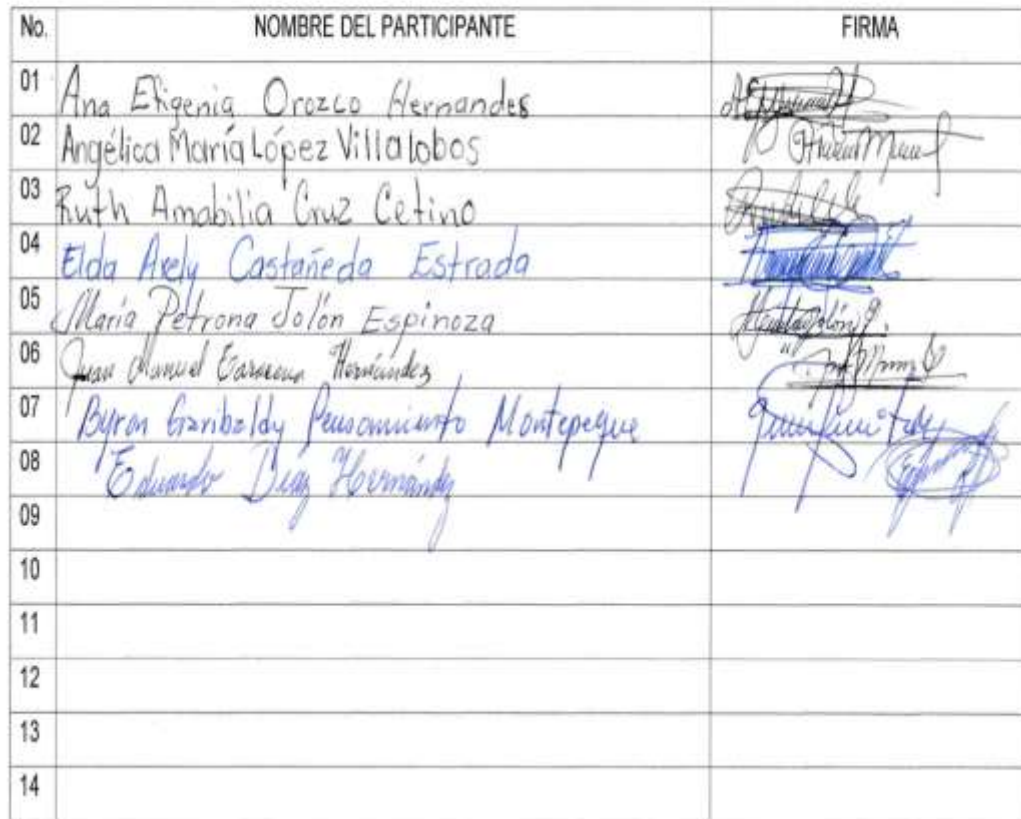 No. NOMBRE DEL PARTICIPANTE FIRMA
01 Ana Efigenia Orozco Hernandes
02 Angélica María López Villalobos
03 Ruth Amabilia Cruz Cetino
04 Elda Arely Castañeda Estrada
05 María Petrona Jolón Espinoza
06 Juan Manuel Hernández
07 Byron Garibaldy Pensamiento Montepeque
08 Eduardo Diaz Hernández
09
10
11
12
13
14